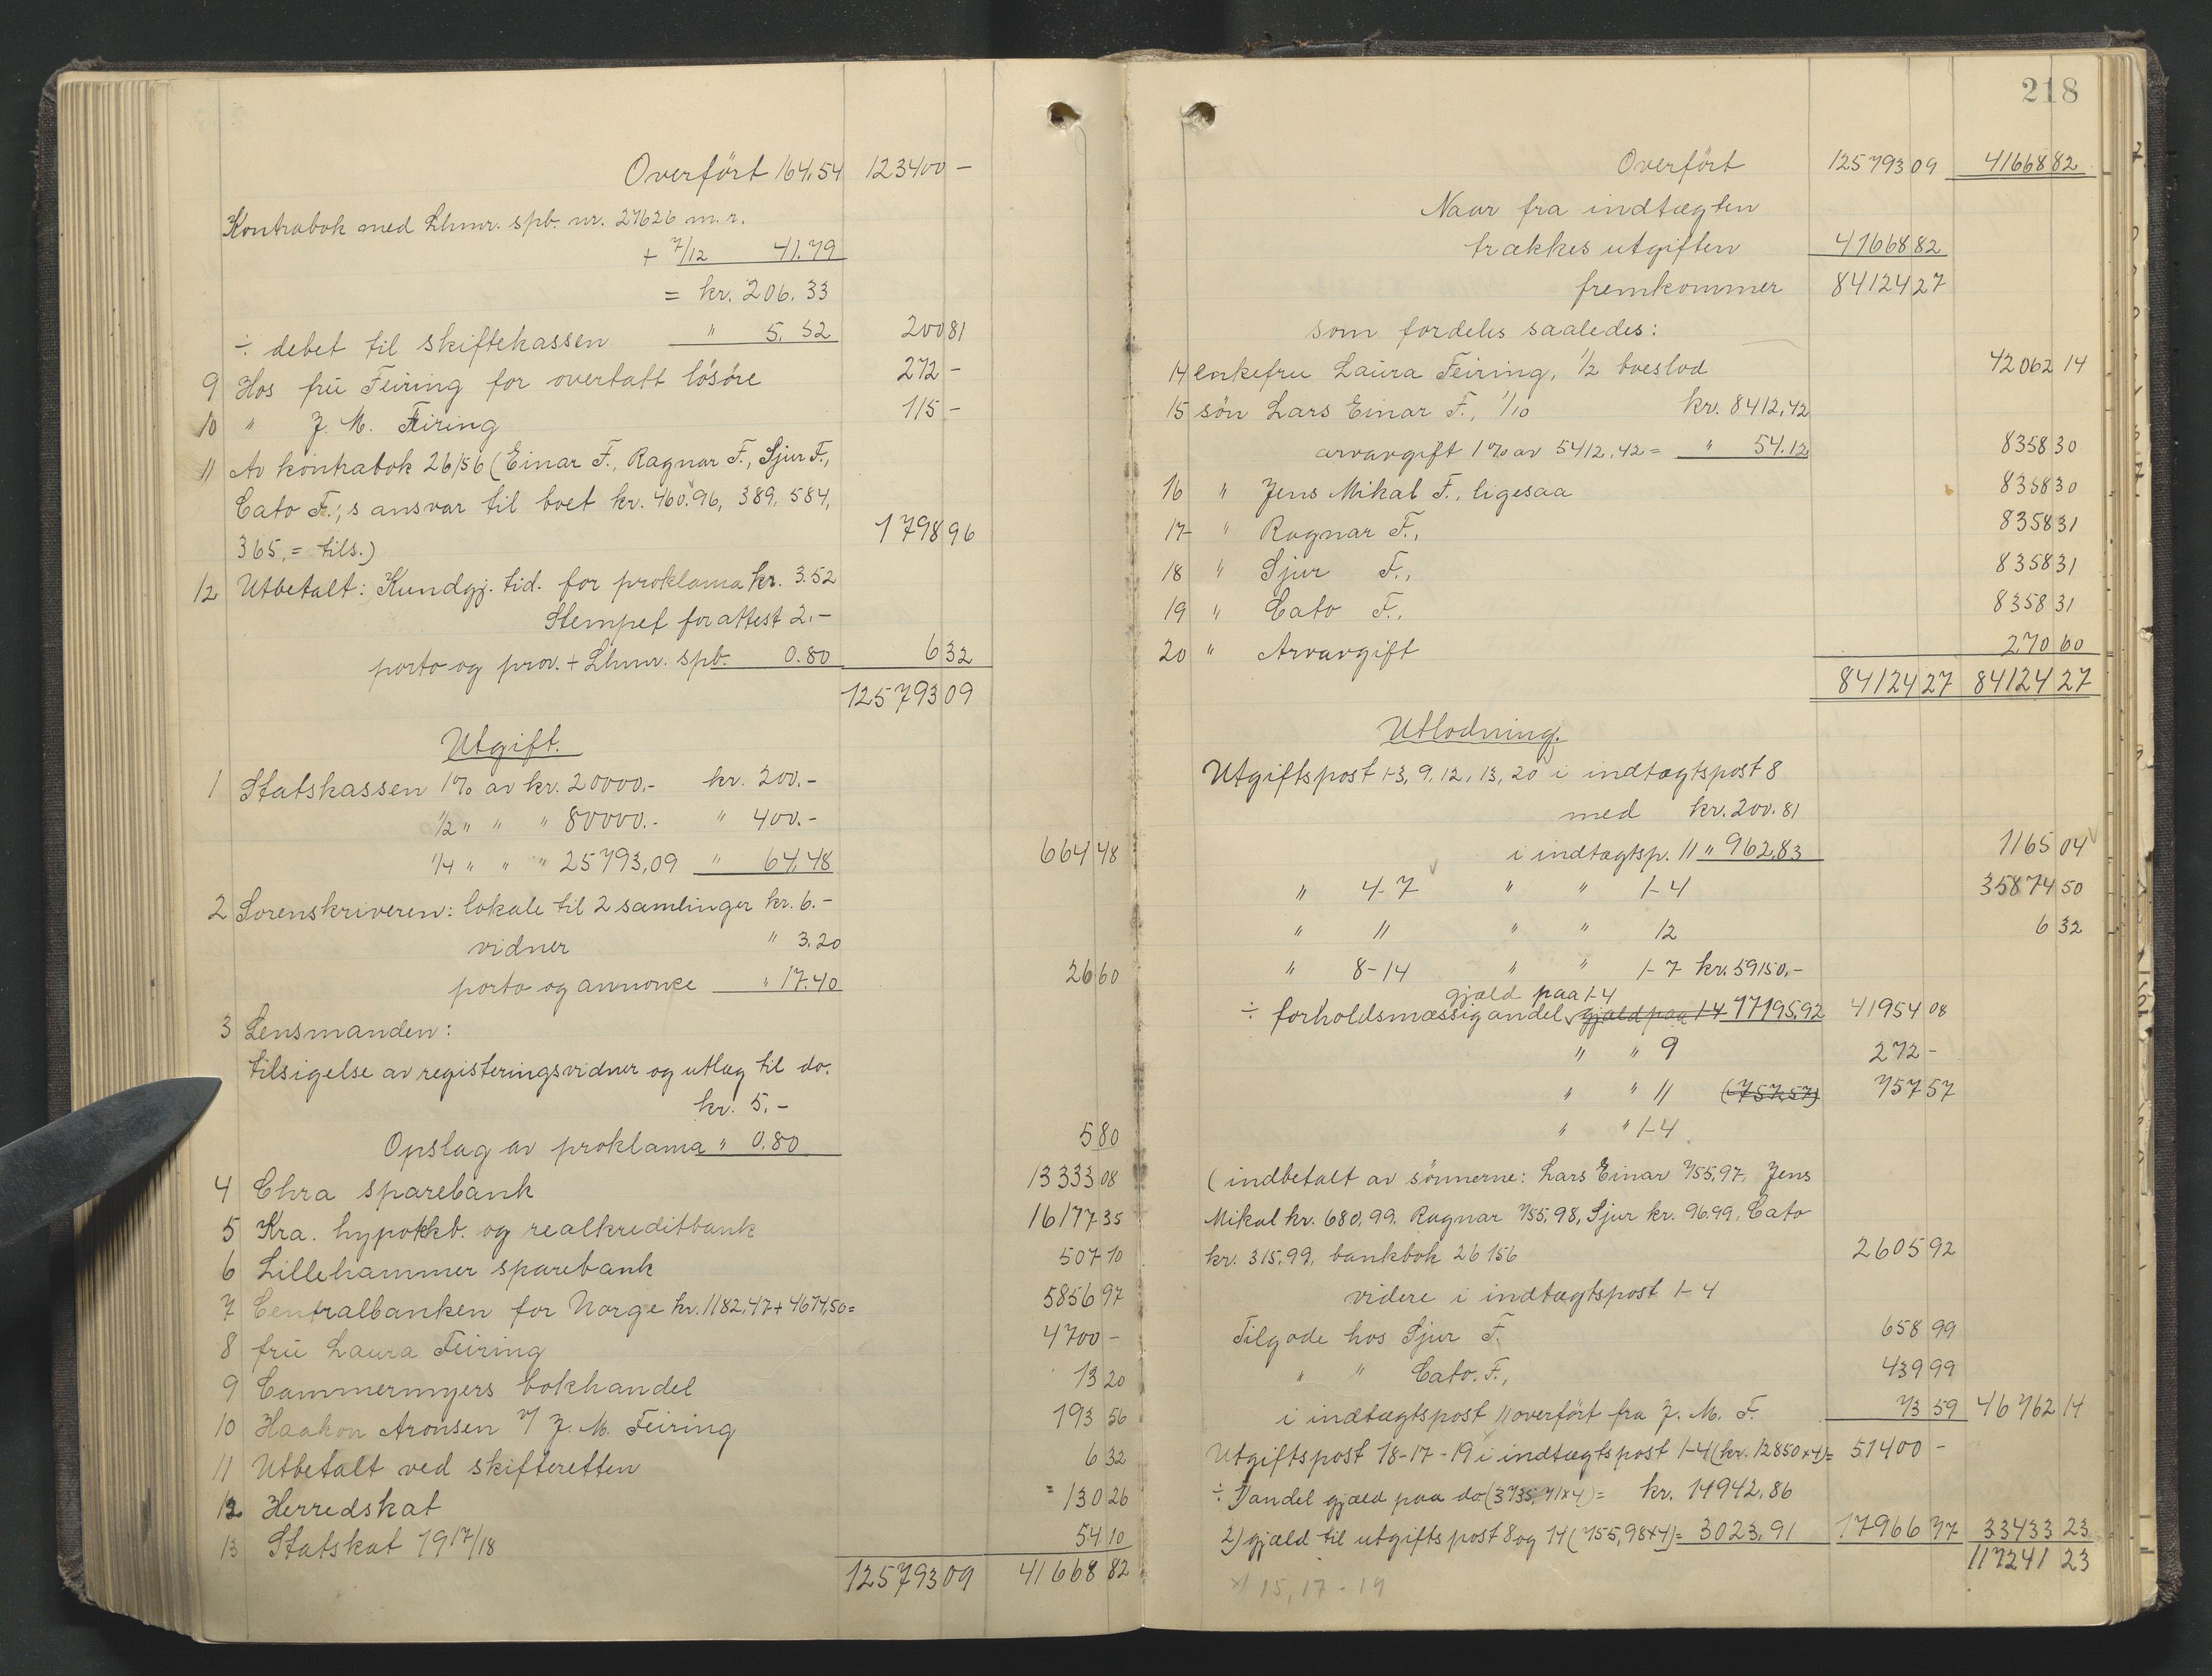 Overført 164,54 123400 –
Kontrabok med Lhmr. spb. nr. 27626 m. r.
+ 7/12 41.79
= kr. 206.33
÷ debet til skiftekassen " 5.52 200 81
9 Hos frü Feiring for overtatt løsøre 272 –
10 " J. M. Feiring 115 –
11 Av kontrabok 26156 (Einar F., Ragnar F., Sjur F.,
Cato F.;s ansvar til boet kr. 460.96, 389, 584,
365, = tils.) 1798 96
12 Utbetalt: Kundgj. tid. for proklama kr. 3.52
Stempel for attest 2.–
porto og prov. + Lhmr. spb. 0.80 6 32
125793 09
Utgift.
1 Statskassen 1% av kr. 20000.– kr. 200.–
1/2 " " " 80000.– " 400.–
1/4 " " " 25793,09 " 64,48 664 48
2 Sorenskriveren: lokale til 2 samlinger kr. 6.–
vidner " 3.20
porto og annonce " 17.40 26 60
3 Lensmanden:
tilsigelse av registeringsvidner og utlæg til do.
kr. 5.–
Opslag av proklama " 0.80 5 80
4 Chra sparebank 13333 08
5 Kra. hypotkb. og realkreditbank 16177 35
6 Lillehammer sparebank 507 10
7 Centralbanken for Norge kr. 1182,47 + 4674,50 = 5856 97
8 frü Laura Feiring 4700 –
9 Cammermyers bokhandel 13 20
10 Haakon Aronsen v/ J. M. Feiring 193 56
11 Utbetalt ved skifteretten 6 32
12 Herredskat 130 26
13 Statskat 1917/18 54 10
125793 09 41668 82
218
Overført 125793 09 41668 82
Naar fra indtægten
trækkes utgiften 41668 82
fremkommer 84124 27
som fordeles saaledes:
14 enkefru Laura Feiring, 1/2 boeslod 42062 14
15 søn Lars Einar F., 1/10 kr. 8412,42
arvavgift 1% av 5412,42 = " 54.12 8358 30
16 " Jens Mikal F., ligesaa 8358 30
17 " Ragnar F., 8358 31
18 " Sjur F., 8358 31
19 " Cato F., 8358 31
20 " Arvavgift 270 60
84124 27 84124 27
Utlodning.
Utgiftspost 1-3, 9, 12, 13, 20 i indtægtspost 8
med kr. 200.81
i indtægtsp. 11 " 962,83 1165 04
" 4-7 " " 1-4 35874 50
" 11 " " 12 6 32
" 8-14 " " 1-7 kr. 59150.–
gjæld paa 1-4
÷ forholdsmæssig andel gjæld paa 1-4 17195,92 41954 08
" " 9 272 –
" " 11 (757,57) 757 57
" " 1-4
(indbetalt av sønnerne: Lars Einar 755,97, Jens
Mikal kr. 680,99, Ragnar 755,98, Sjur kr. 96.99, Cato
kr. 315,99, bankbok 26156 2605 92
videre i indtægtspost 1-4
Tilgode hos Sjur F. 658 99
" " Cato. F., 439 99
i indtægtspost 11 overført fra J. M. F. 73 59 46762 14
Utgiftspost 18-17-19 i indtægtspost 1-4 (kr. 12850 x 4) = 51400 –
÷ 1) andel gjæld paa do (3735,71 x 4) = kr. 14942,86
2) gjæld til utgiftspost 8 og 14 (755,98 x 4) = 3023,91 17966 77 33433 23
117241 23
x) 15, 17 - 19